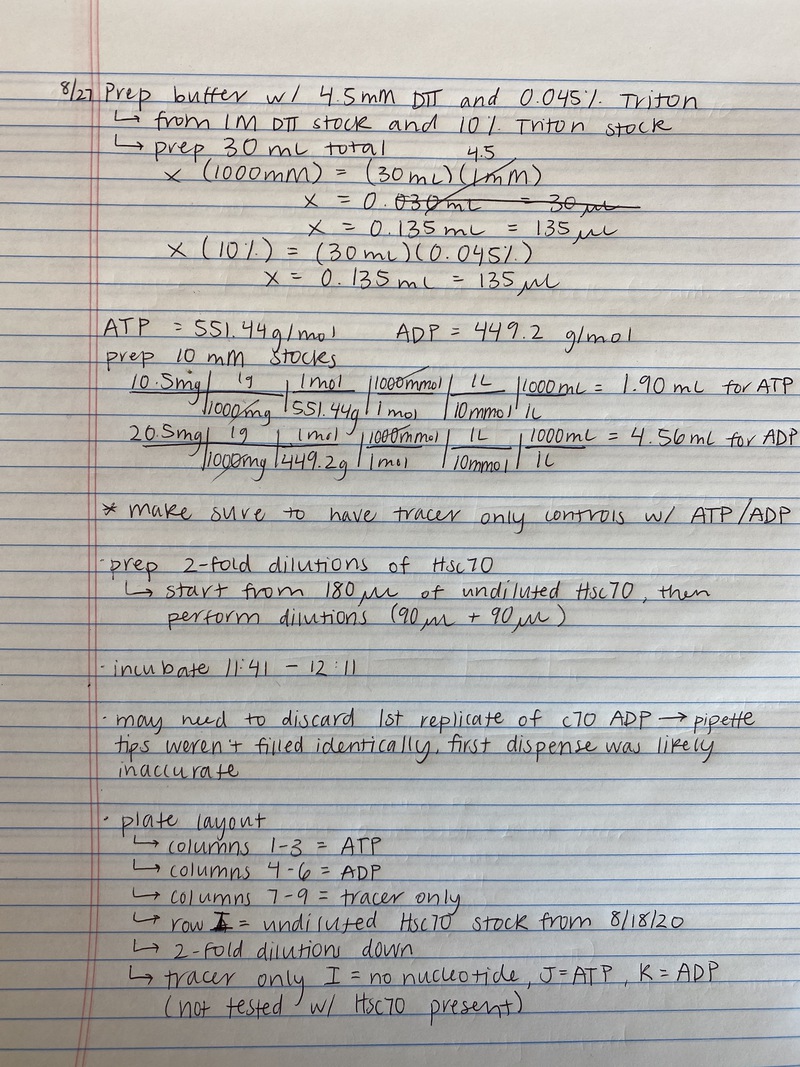 8/27 Prep buffer w/ 4.5mM DTT and 0.045% Triton
↳ from 1M DTT stock and 10% Triton stock
↳ prep 30 mL total
4.5
x (1000mM) = (30mL)(1mM)
x = 0.030mL = 30 µL
x = 0.135 mL = 135 µL
x (10%) = (30mL)(0.045%)
x = 0.135 mL = 135 µL
ATP = 551.44g/mol ADP = 449.2 g/mol
prep 10 mM stocks
10.5mg | 1g | 1mol | 1000mmol | 1L | 1000mL = 1.90 mL for ATP
| 1000mg | 551.44g | 1mol | 10mmol | 1L
20.5mg | 1g | 1mol | 1000mmol | 1L | 1000mL = 4.56mL for ADP
| 1000mg | 449.2g | 1mol | 10mmol | 1L
* make sure to have tracer only controls w/ ATP/ADP
· prep 2-fold dilutions of Hsc70
↳ start from 180 µL of undiluted Hsc70, then
perform dilutions (90 µL + 90 µL)
· incubate 11:41 - 12:11
· may need to discard 1st replicate of c70 ADP → pipette
tips weren't filled identically, first dispense was likely
inaccurate
· plate layout
↳ columns 1-3 = ATP
↳ columns 4-6 = ADP
↳ columns 7-9 = tracer only
↳ row = undiluted Hsc70 stock from 8/18/20
↳ 2-fold dilutions down
↳ tracer only I = no nucleotide, J=ATP, K=ADP
(not tested w/ Hsc70 present)